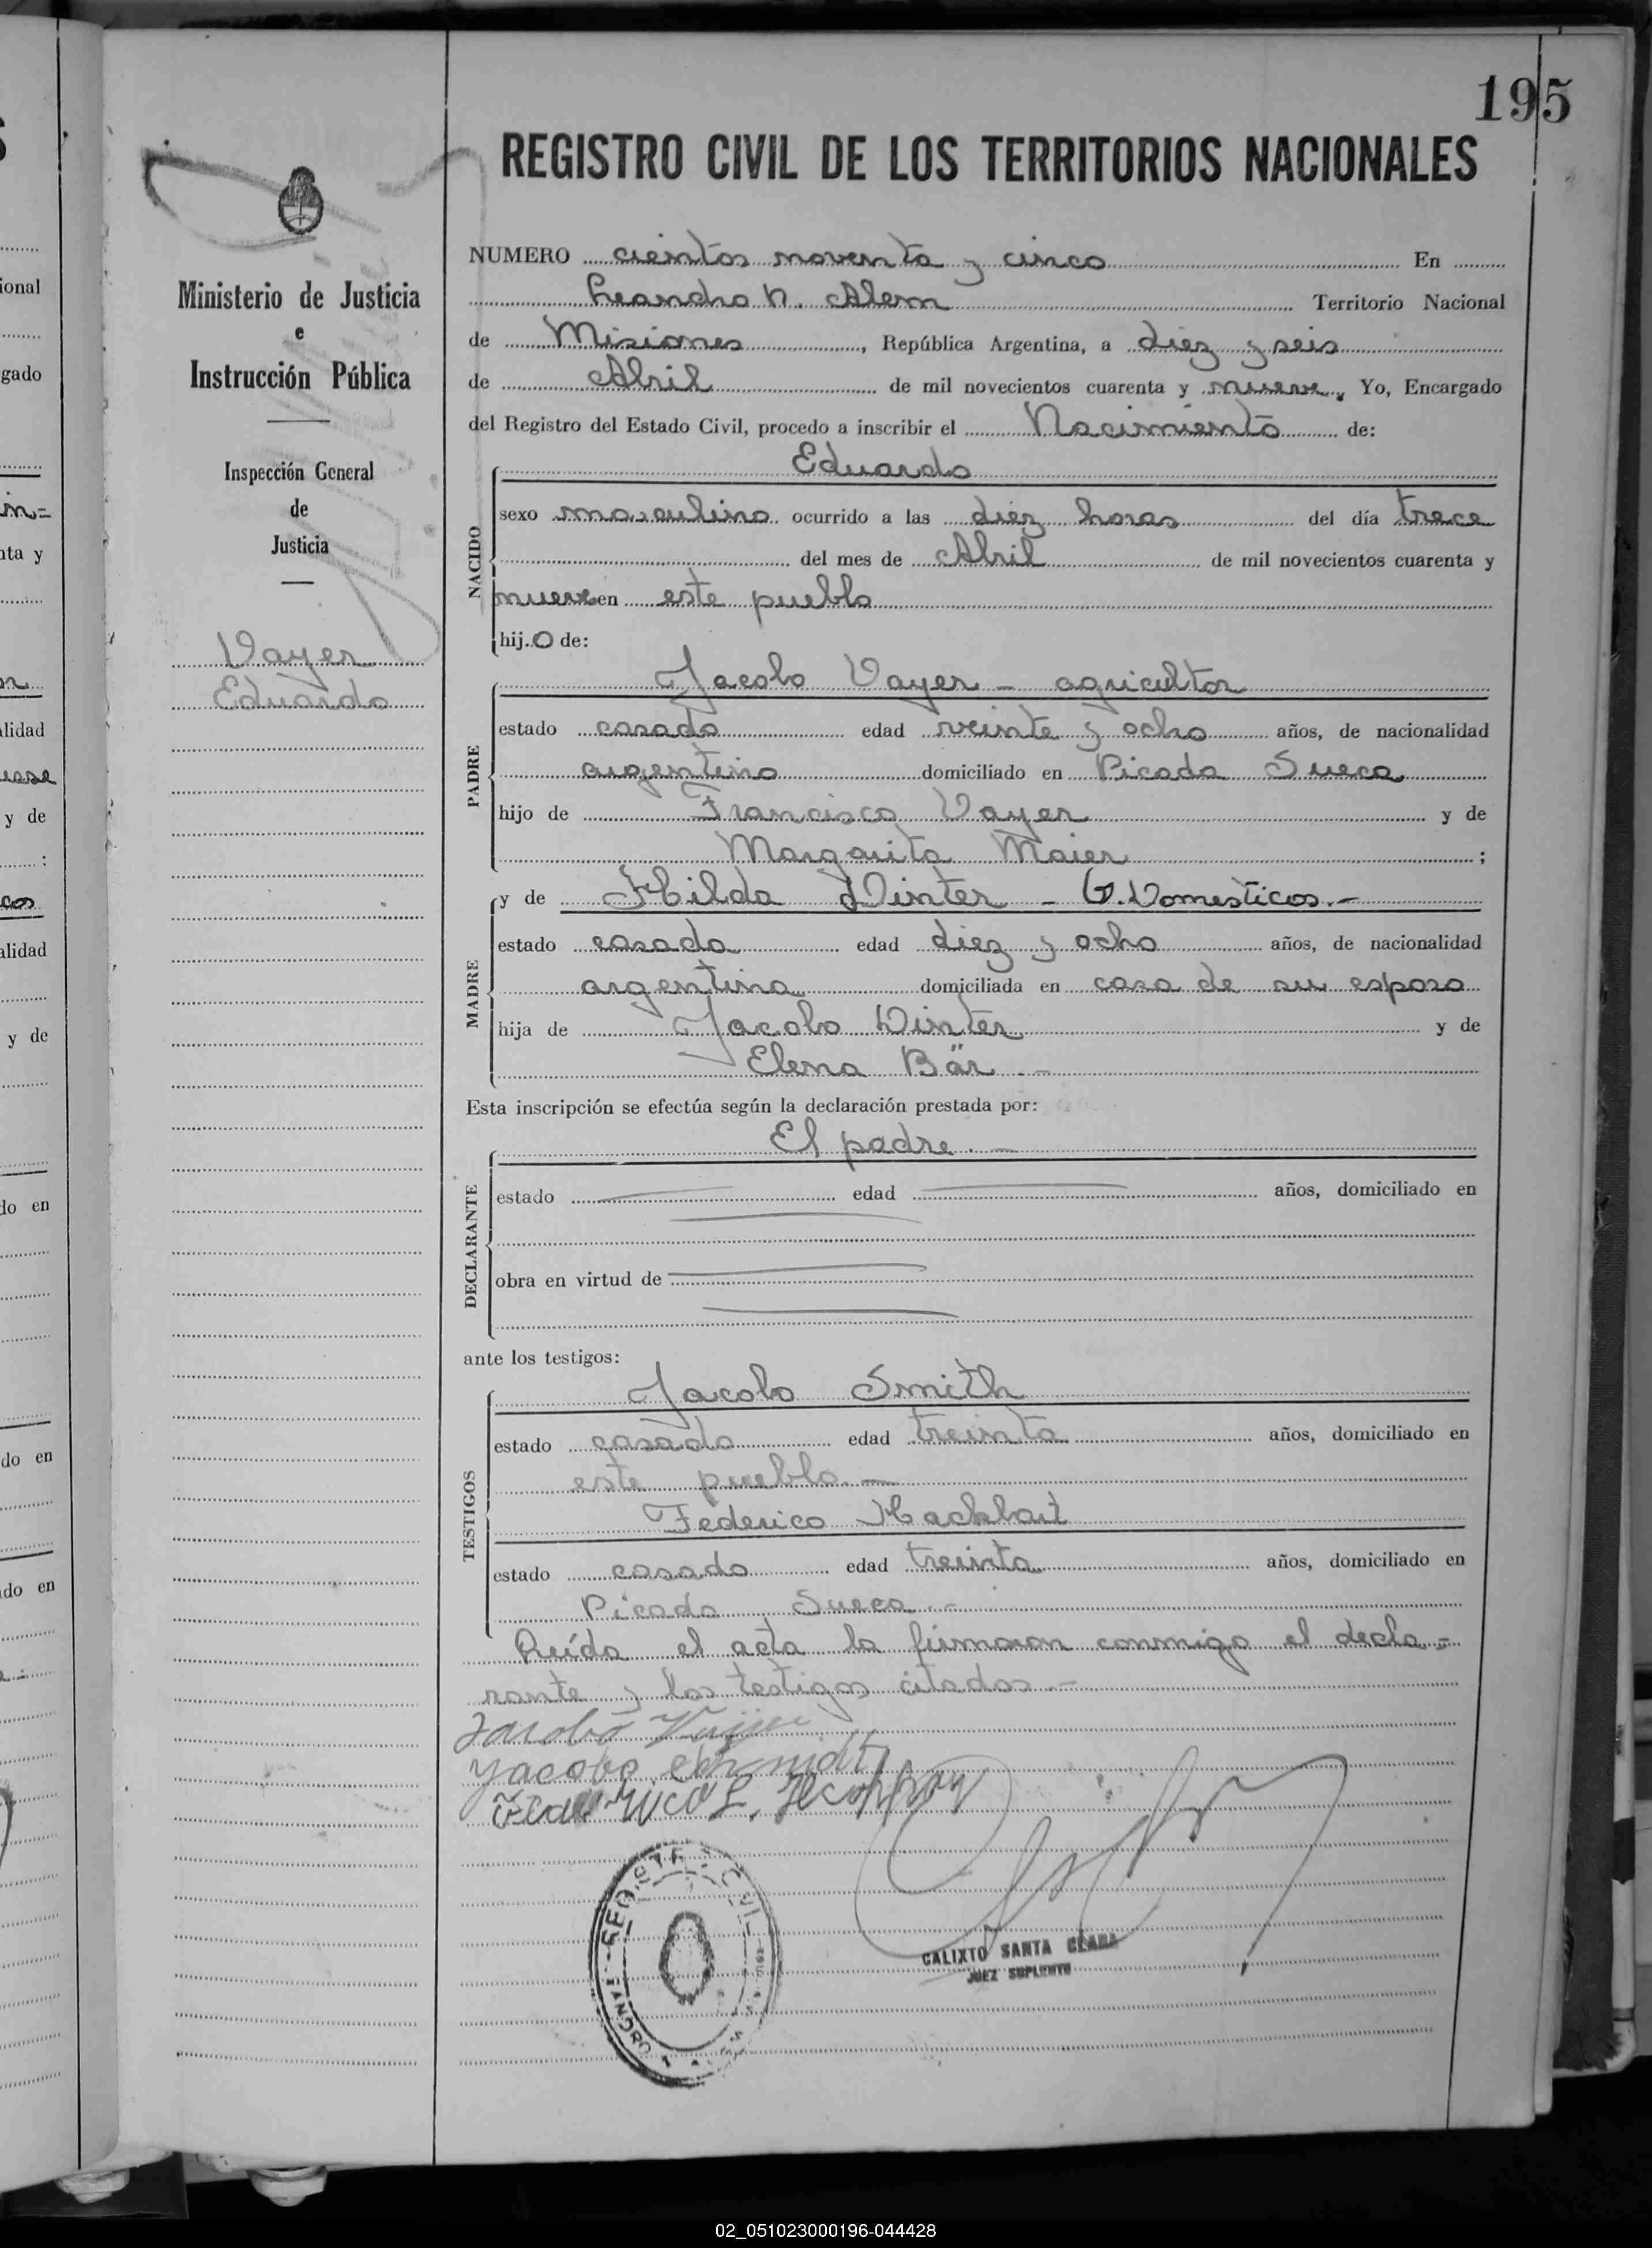 195
REGISTRO CIVIL DE LOS TERRITORIOS NACIONALES
Ministerio de Justicia
e
Instrucción Pública
Inspección General
de
Justicia
Vayer
Eduardo
NUMERO cientos noventa y cinco En
Leandro N. Alem Territorio Nacional
de Misiones, República Argentina, a diez y seis
de Abril de mil novecientos cuarenta y nueve, Yo, Encargado
del Registro del Estado Civil, procedo a inscribir el Nacimiento de:
NACIDO
Eduardo
sexo masculino ocurrido a las diez horas del día trece
del mes de Abril de mil novecientos cuarenta y
nueve en este pueblo
hijo de:
PADRE
Jacobo Vayer - agricultor
estado casado edad veinte y ocho años, de nacionalidad
argentino domiciliado en Picada Sueca
hijo de Francisco Vayer y de
Margarita Maier ;
MADRE
y de Hilda Winter - Q. Domesticos.-
estado casada edad diez y ocho años, de nacionalidad
argentina domiciliada en casa de su esposo
hija de Jacobo Winter y de
Elena Bär.-
Esta inscripción se efectúa según la declaración prestada por:
DECLARANTE
El padre.-
estado edad años, domiciliado en
obra en virtud de
ante los testigos:
TESTIGOS
Jacobo Smith
estado casado edad treinta años, domiciliado en
este pueblo.-
Federico Hackbart
estado casado edad treinta años, domiciliado en
Picada Sueca.-
Leída el acta la firmaron conmigo el decla-
rante y los testigos citados.-
Jacobo
Yacobo
CALIXTO SANTA CLARA
JUEZ SUPLENTE
02_051023000196-044428